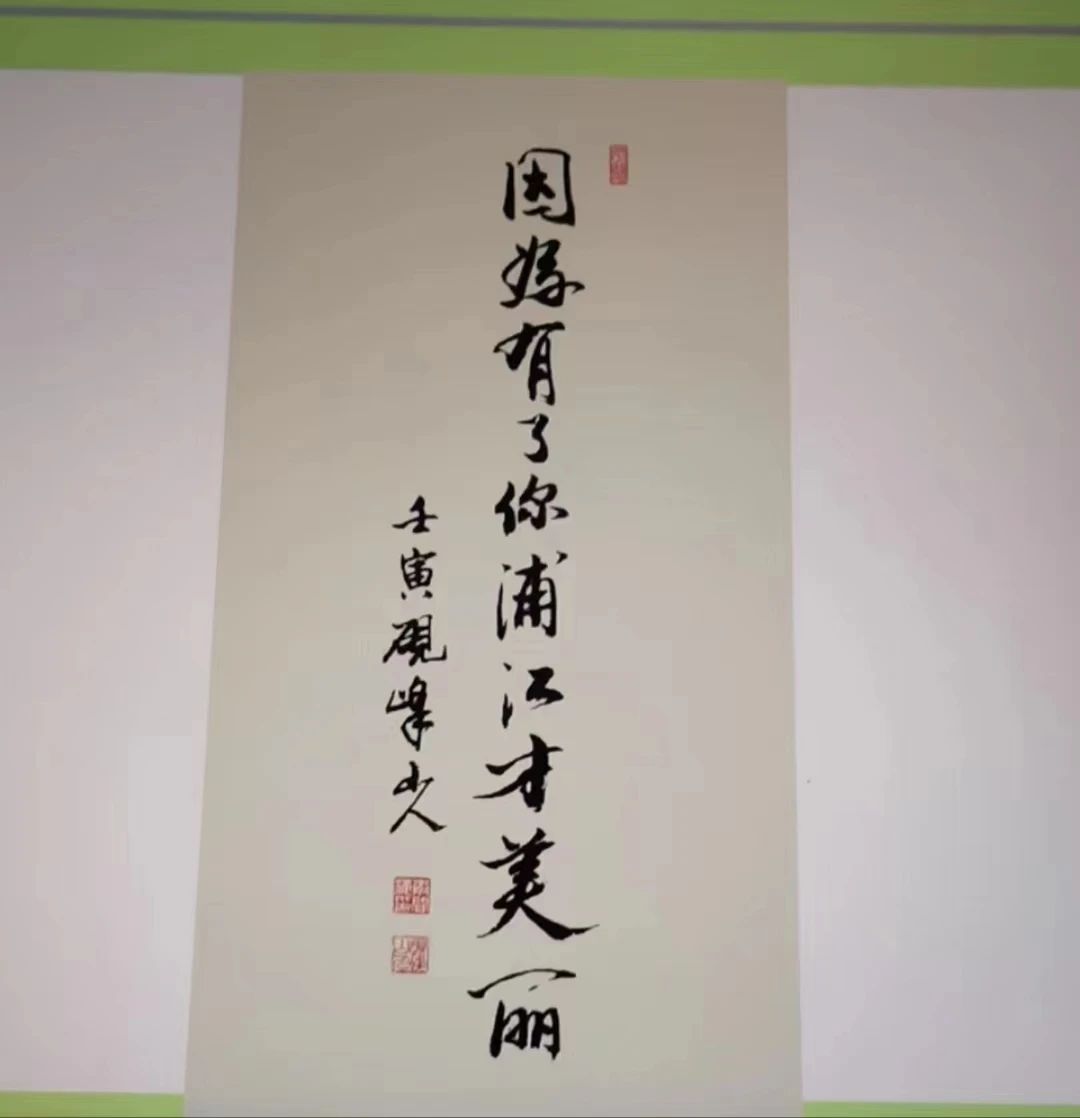 因缘有了你浦江才美丽
壬寅硯峰山人